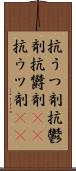 抗うつ剤抗鬱
剤抗欝剤
抗ウツ剤